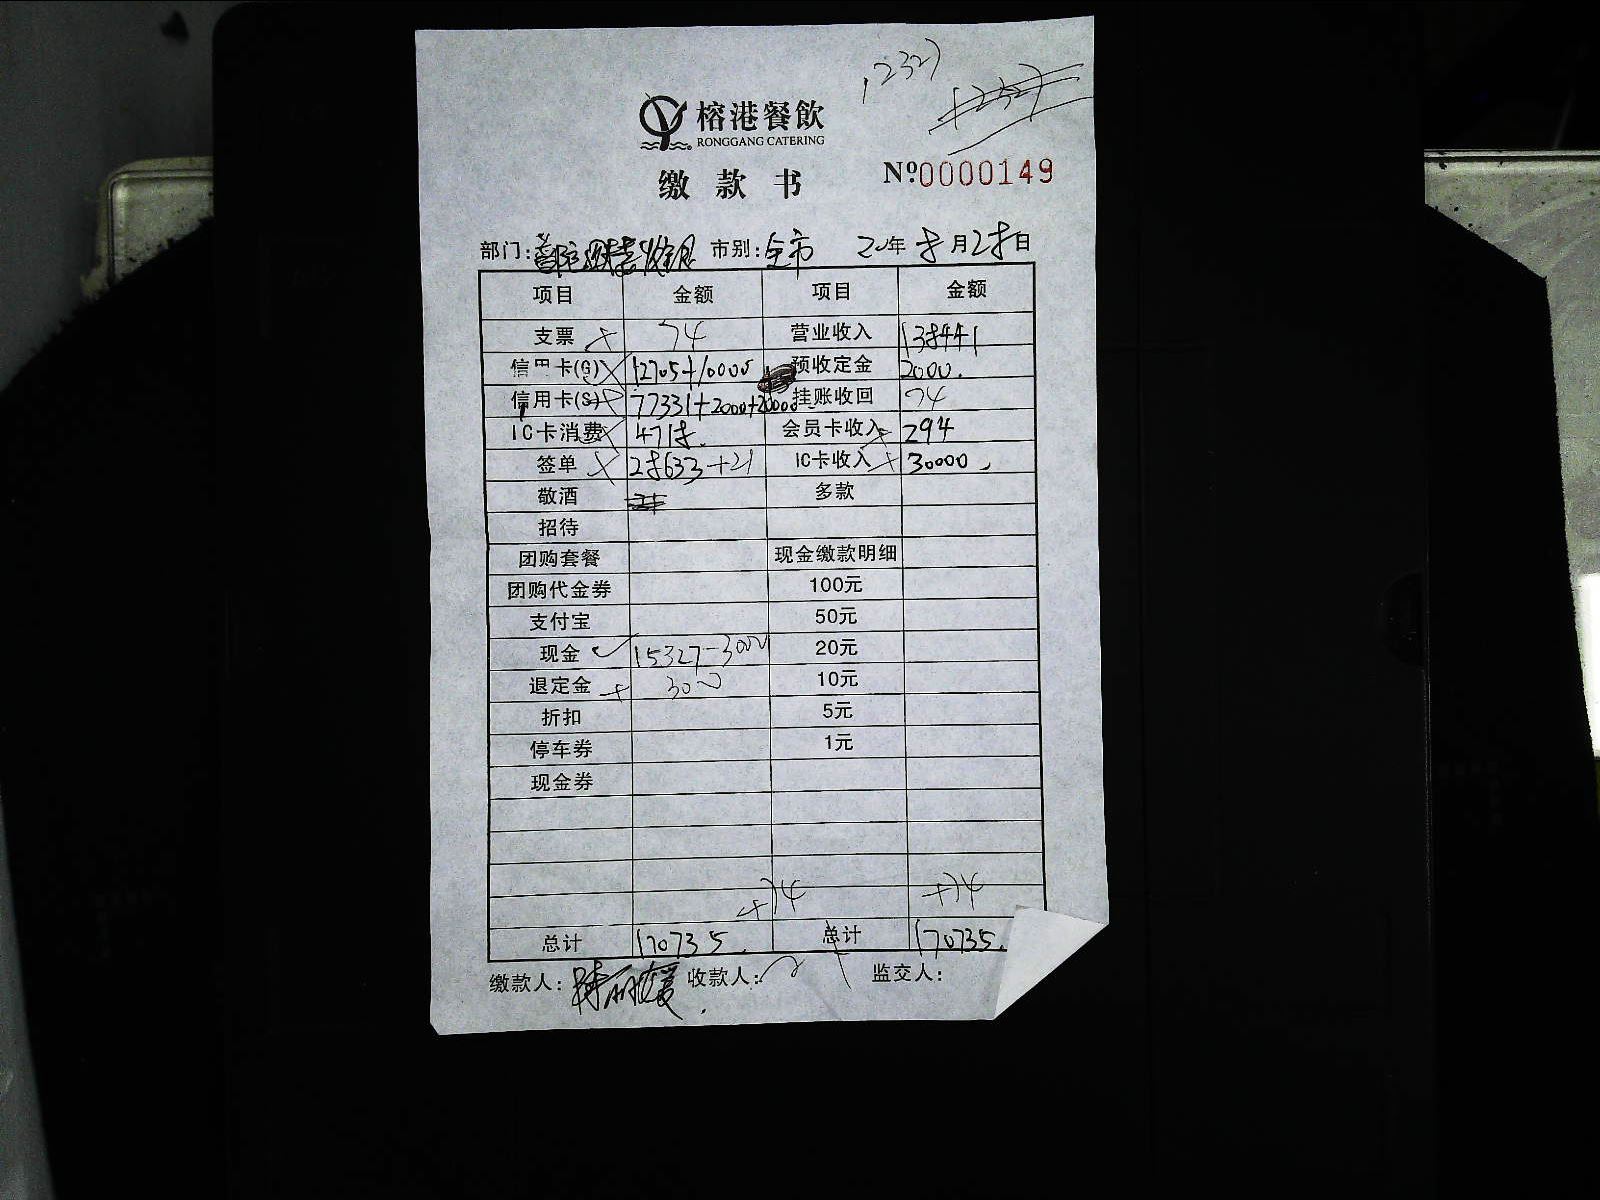 12327
12327
榕港餐飲
RONGGANG CATERING
缴款书
№0000149
部门: 市别:全市 20年8月28日
项目 金额 项目 金额
支票 74 营业收入 138441
信用卡(G) 12705+10000 预收定金 2000.
信用卡(S) 77331+2000+20000 挂账收回 74
IC卡消费 4718. 会员卡收入 294
签单 28633+21 IC卡收入 30000.
敬酒 多款
招待
团购套餐 现金缴款明细
团购代金券 100元
支付宝 50元
现金 15327-3000 20元
退定金 3000 10元
折扣 5元
停车券 1元
现金券
+74 +74
总计 170735. 总计 170735.
缴款人: 收款人: 监交人: